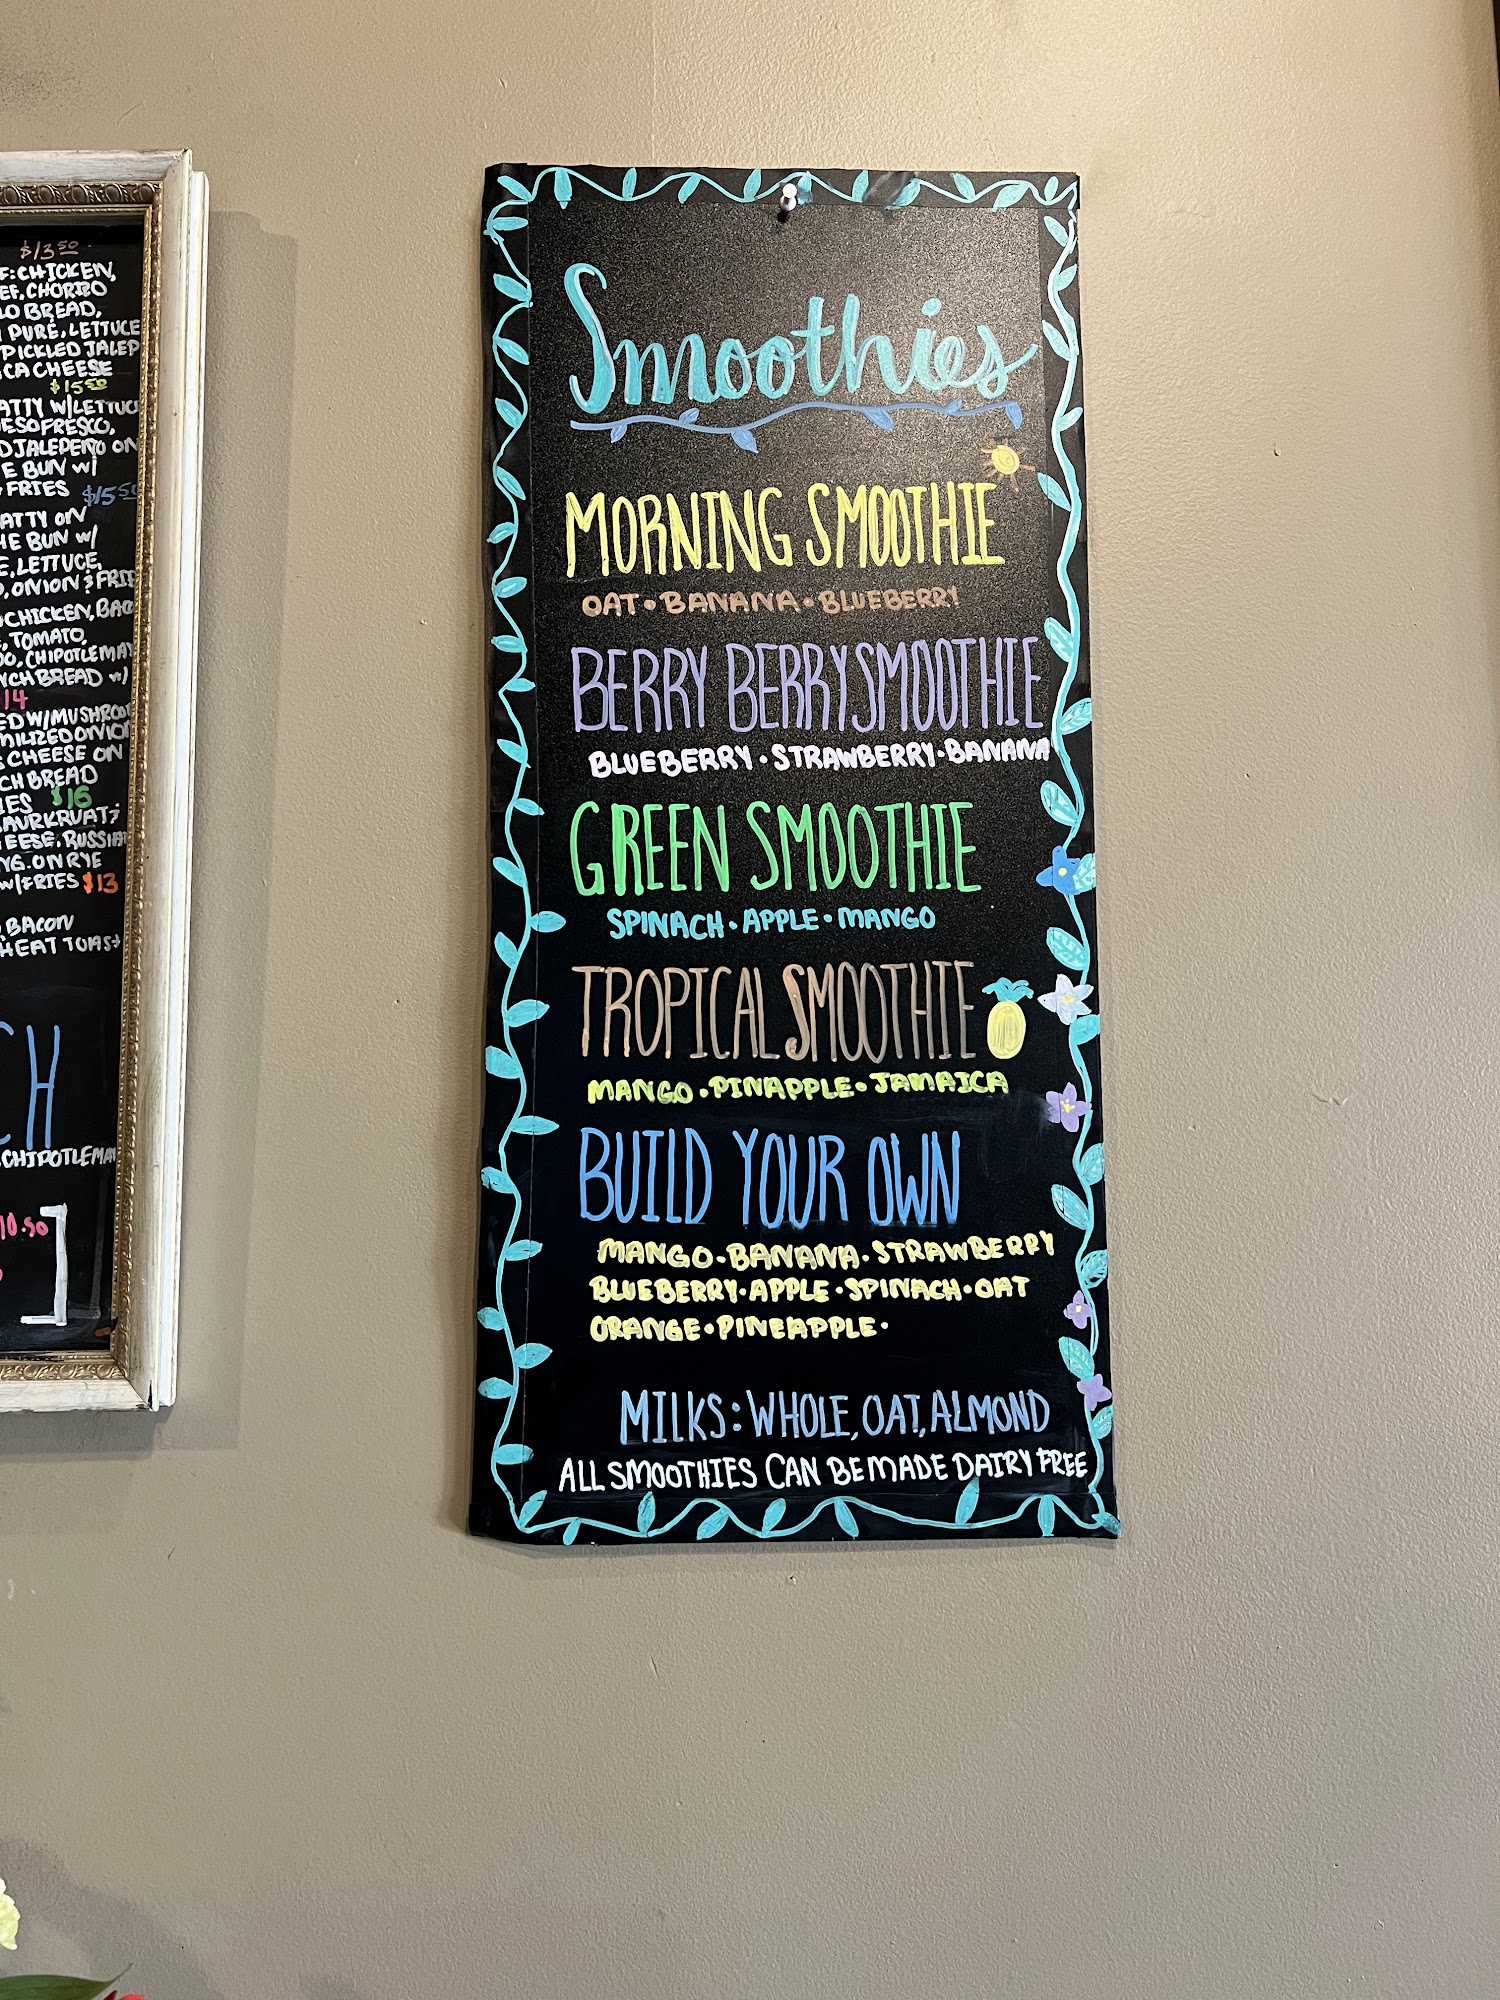 $13.50
F: CHICKEN,
EF, CHORIZO
LO BREAD,
PURÉ, LETTUCE
PICKLED JALEP
CA CHEESE
$15.50
ATTY W/LETTUC
UESOFRESCO,
D JALEPEÑO ON
E BUN W/
FRIES $15.50
ATTY ON
HE BUN W/
E, LETTUCE,
, ONION & FRIE
CHICKEN, BAC
, TOMATO,
DO, CHIPOTLE MAY
CH BREAD W/
14
ED W/MUSHROO
ONION
CHEESE ON
CH BREAD
IES $16
AURKRUAT,
EESE, RUSSIAN
G. ON RYE
W/FRIES $13
, BACON
HEAT TOAST
CH
CHIPOTLE MA
10.50
Smoothies
MORNING SMOOTHIE
OAT • BANANA • BLUEBERRY
BERRY BERRY SMOOTHIE
BLUEBERRY • STRAWBERRY • BANANA
GREEN SMOOTHIE
SPINACH • APPLE • MANGO
TROPICAL SMOOTHIE
MANGO • PINAPPLE • JAMAICA
BUILD YOUR OWN
MANGO • BANANA • STRAWBERRY
BLUEBERRY • APPLE • SPINACH • OAT
ORANGE • PINEAPPLE •
MILKS: WHOLE, OAT, ALMOND
ALL SMOOTHIES CAN BE MADE DAIRY FREE